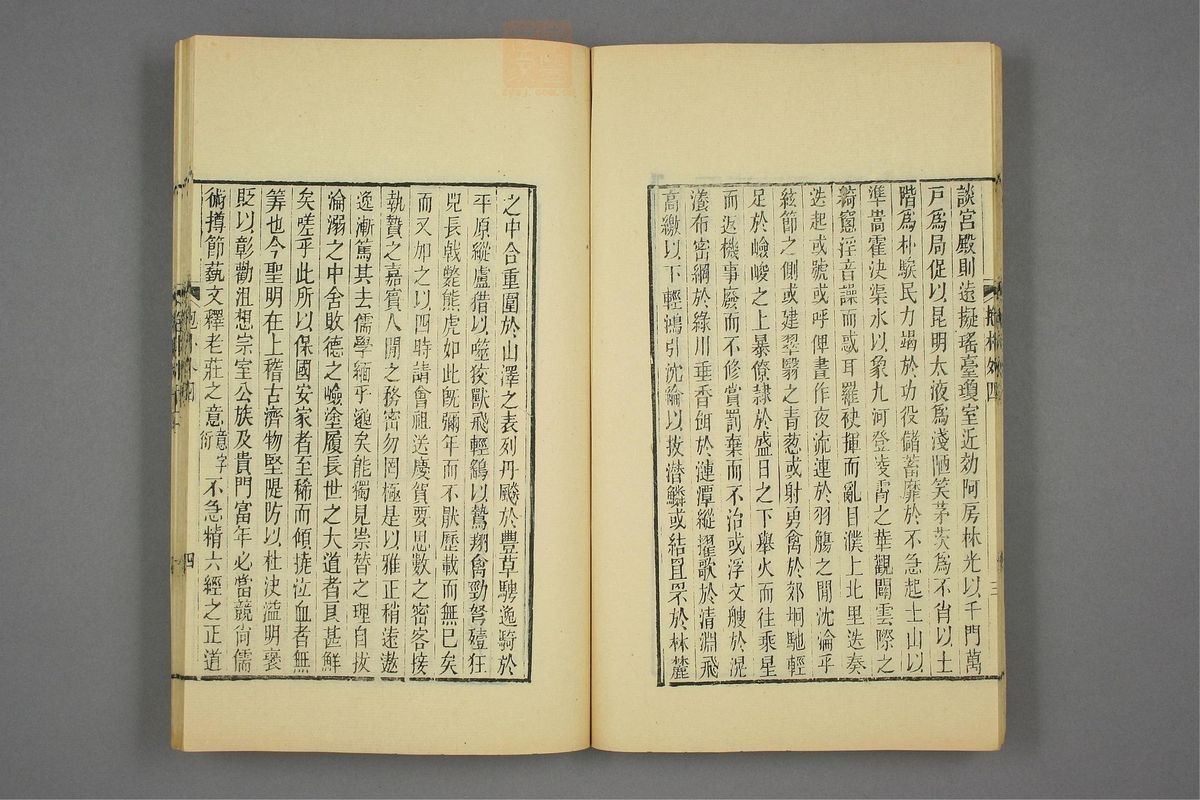 談宮殿則遠擬瑤臺瓊室近効阿房林光以千門萬
戸爲局促以昆明太液爲淺陋笑茅茨爲不肖以土
階爲朴騃民力竭於功役儲蓄靡於不急起土山以
準嵩霍決渠水以象九河登凌霄之華觀闢雲際之
綺窻淫音譟而惑耳羅袂揮而亂目濮上北里迭奏
迭起或號或呼俾晝作夜流連於羽觴之閒沈淪乎
絃節之側或建翠翳之青葱或射勇禽於郊坰馳輕
足於嶮峻之上暴僚隷於盛日之下舉火而往乘星
而返機事廢而不修賞罰棄而不治或浮文艘於滉
瀁布密綱於綠川垂香餌於漣潭縱擢歌於清淵飛
高繳以下輕鴻引沈綸以拔潜鱗或結罝罘於林麓
之中合重圍於山澤之表列丹飈於豐草騁逸騎於
平原縱盧猎以噬狡獸飛輕鷂以鷙翔禽勁弩殪狂
兕長戟斃熊虎如此旣彌年而不猒歷載而無已矣
而又加之以四時請會祖送慶賀要思數之密客接
執贄之嘉賓人閒之務密勿罔極是以雅正稍遠遨
逸漸篤其去儒學緬乎邈矣能獨見崇替之理自拔
淪溺之中舍敗德之嶮塗履長世之大道者良甚鮮
矣嗟乎此所以保國安家者至稀而傾撓泣血者無
筭也今聖明在上稽古濟物堅隄防以杜決溢明褒
貶以彰勸沮想宗室公族及貴門富年必當競尙儒
術撙節蓺文釋老莊之意意字衍不急精六經之正道
抱朴外四
三
四